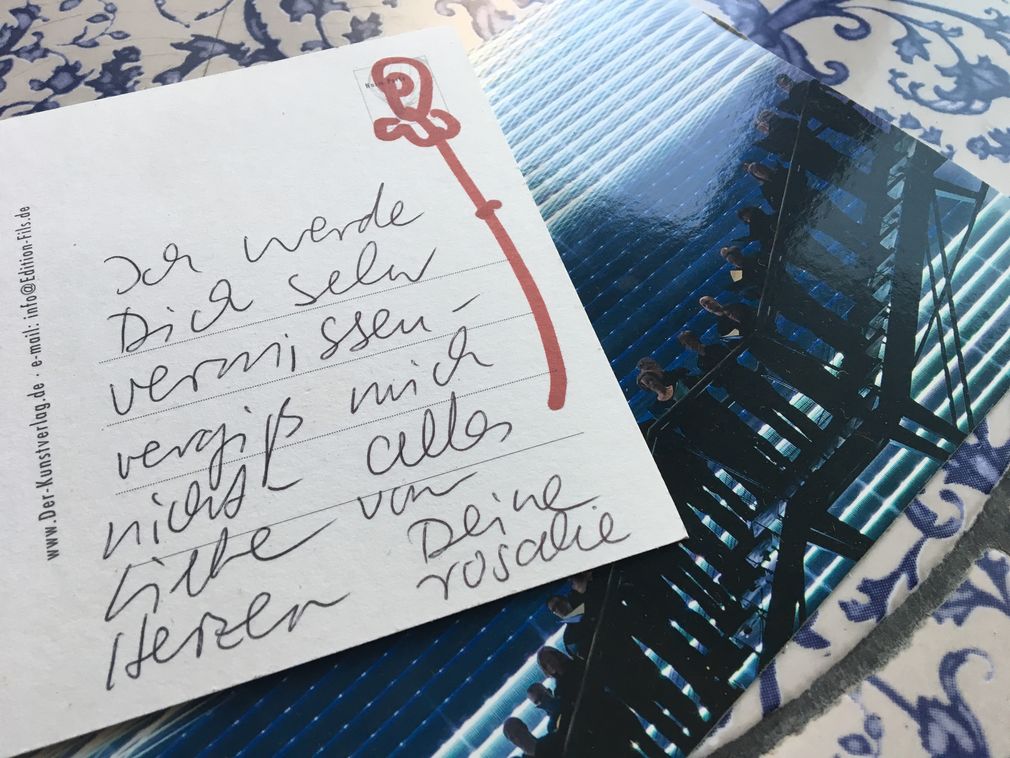 Ich werde
Dich sehr
vermissen -
vergiß mich
nicht alles
Liebe von
Herzen Deine
rosalie
www.Der-Kunstverlag.de · e-mail: info@Edition-Fils.de